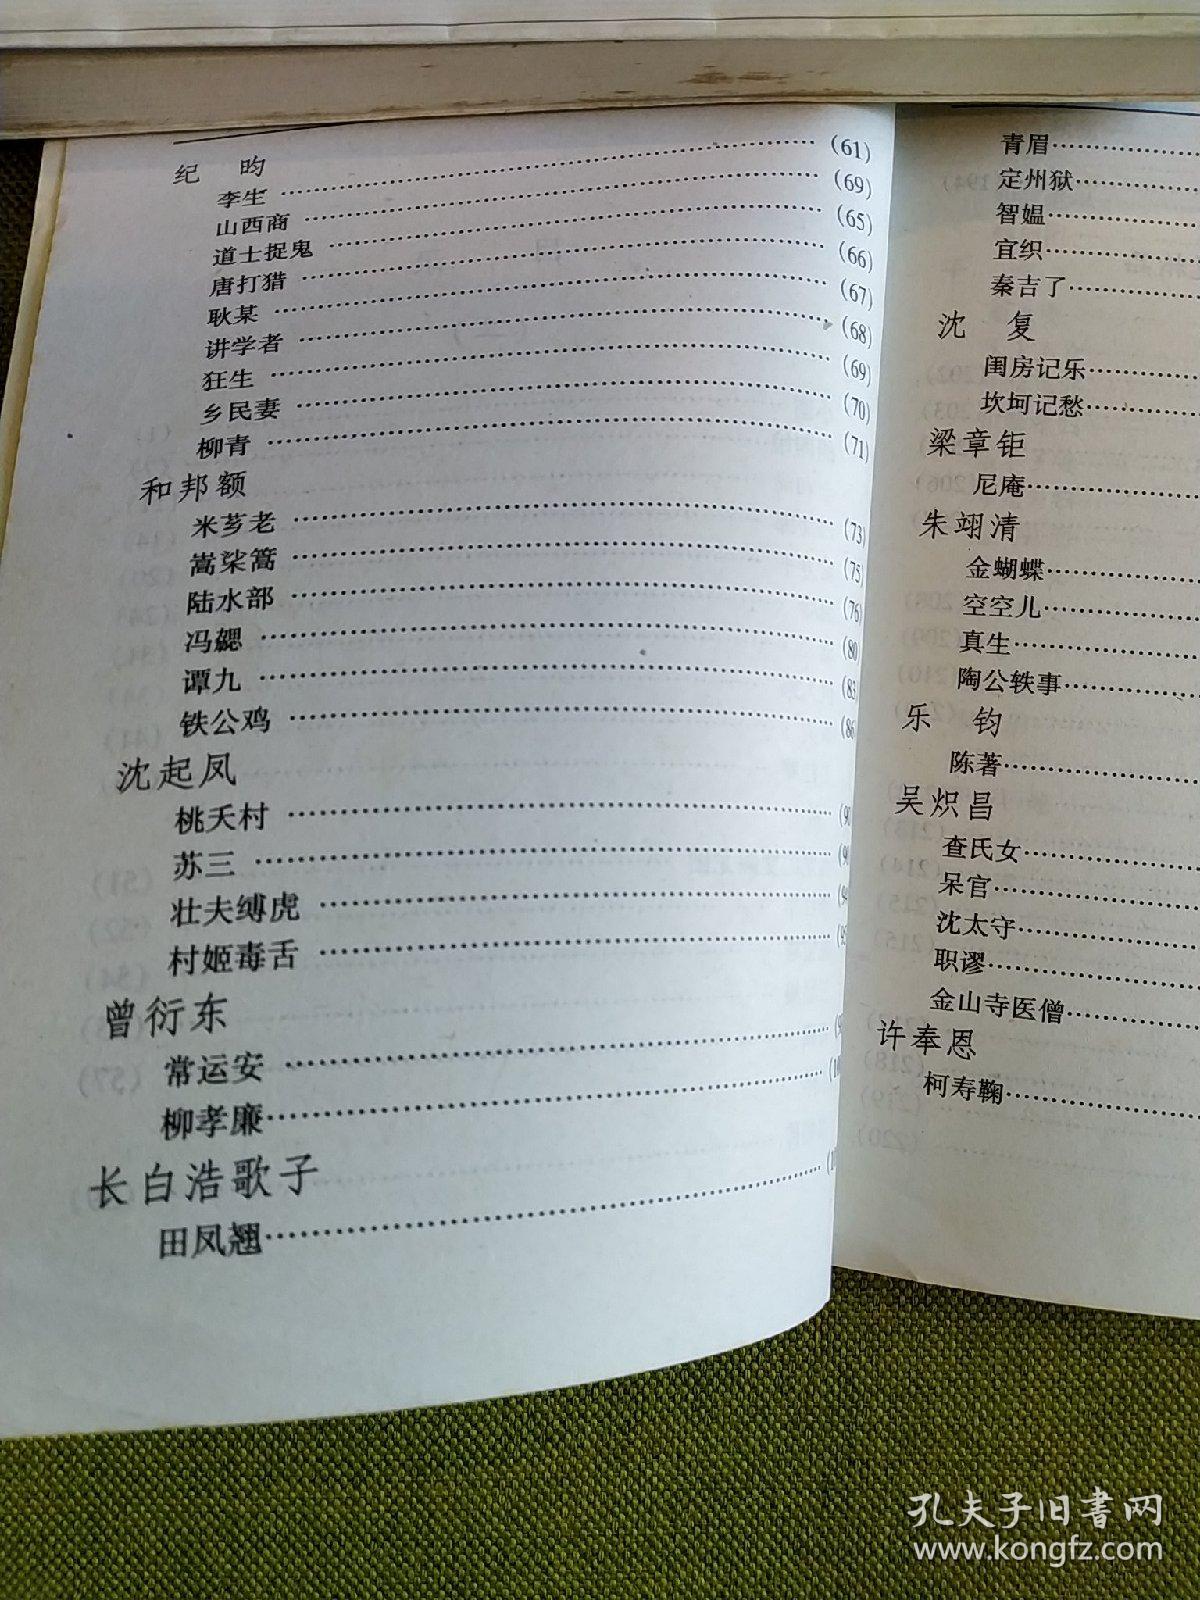 纪 昀
李生 (61)
山西商 (69)
道士捉鬼 (65)
唐打猎 (66)
耿某 (67)
讲学者 (68)
狂生 (69)
乡民妻 (70)
柳青 (71)
和邦额
米芗老 (73)
嵩棪篙 (75)
陆水部 (76)
冯勰 (80
谭九 (83
铁公鸡 (86
沈起凤
桃夭村
苏三
壮夫缚虎
村姬毒舌
曾衍东
常运安
柳孝廉
长白浩歌子
田凤翘
青眉
定州狱
智媪
宜织
秦吉了
沈 复
闺房记乐
坎坷记愁
梁章钜
尼庵
朱翊清
金蝴蝶
空空儿
真生
陶公轶事
乐 钧
陈著
吴炽昌
查氏女
呆官
沈太守
职谬
金山寺医僧
许奉恩
柯寿鞠
孔夫子旧书网
www.kongfz.com